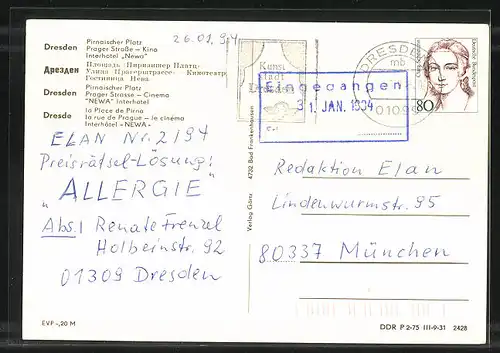 26.01.94
Dresden Pirnaischer Platz
Prager Straße - Kino
Interhotel „Newa"
Дрезден Площадь Пирнаишер Платц
Улица Прагерштрассе - Кинотеатр
Гостиница Нева
Dresden Pirnaischer Platz
Prager Strasse - Cinema
"NEWA" Interhotel
Dresde la Place de Pirna
la rue de Prague - le cinéma
Interhôtel «NEWA»
ELAN Nr. 2/94
Preisrätsel-Lösung:
„ALLERGIE"
Abs.| Renate Frenzel
Holbeinstr. 92
01309 Dresden
EVP -,20 M
Verlag Görtz 4732 Bad Frankenhausen
Kunst
Stadt
Dresden
DRESDEN
mb
01099
Eingegangen
31. JAN. 1994
80
Redaktion Elan
Lindenwurmstr. 95
80337 München
DDR P 2-75 III-9-31 2428